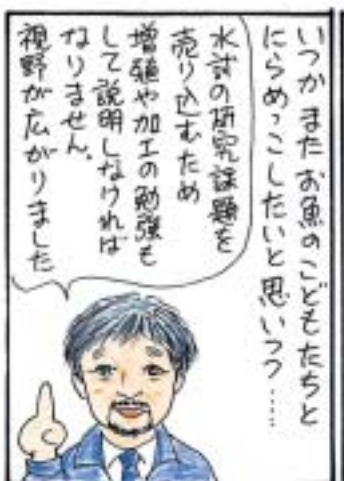 いつかまたお魚のこどもたちと
にらめっこしたいと思いつつ……
水試の研究課題を
売り込むため
増殖や加工の勉強も
して説明しなければ
なりません。
視野が広がりました